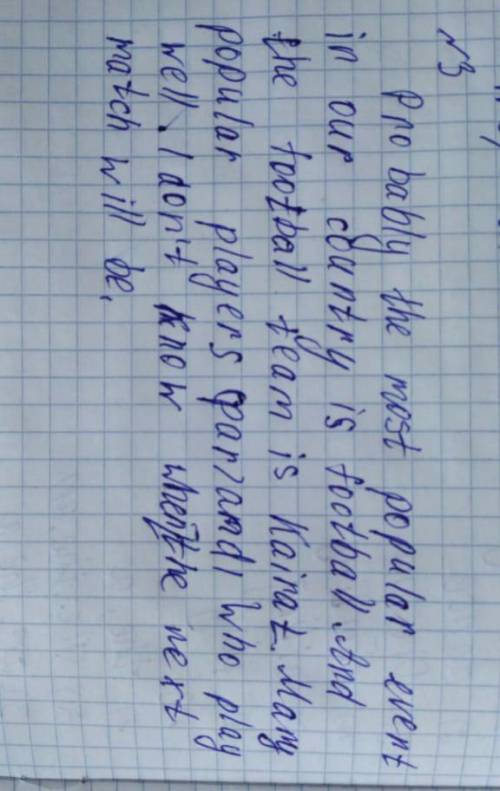 N3
Probably the most popular event
in our country is football. And
the football team is Kairat. Many
popular players who play
well. I don't know when the next
match will be,